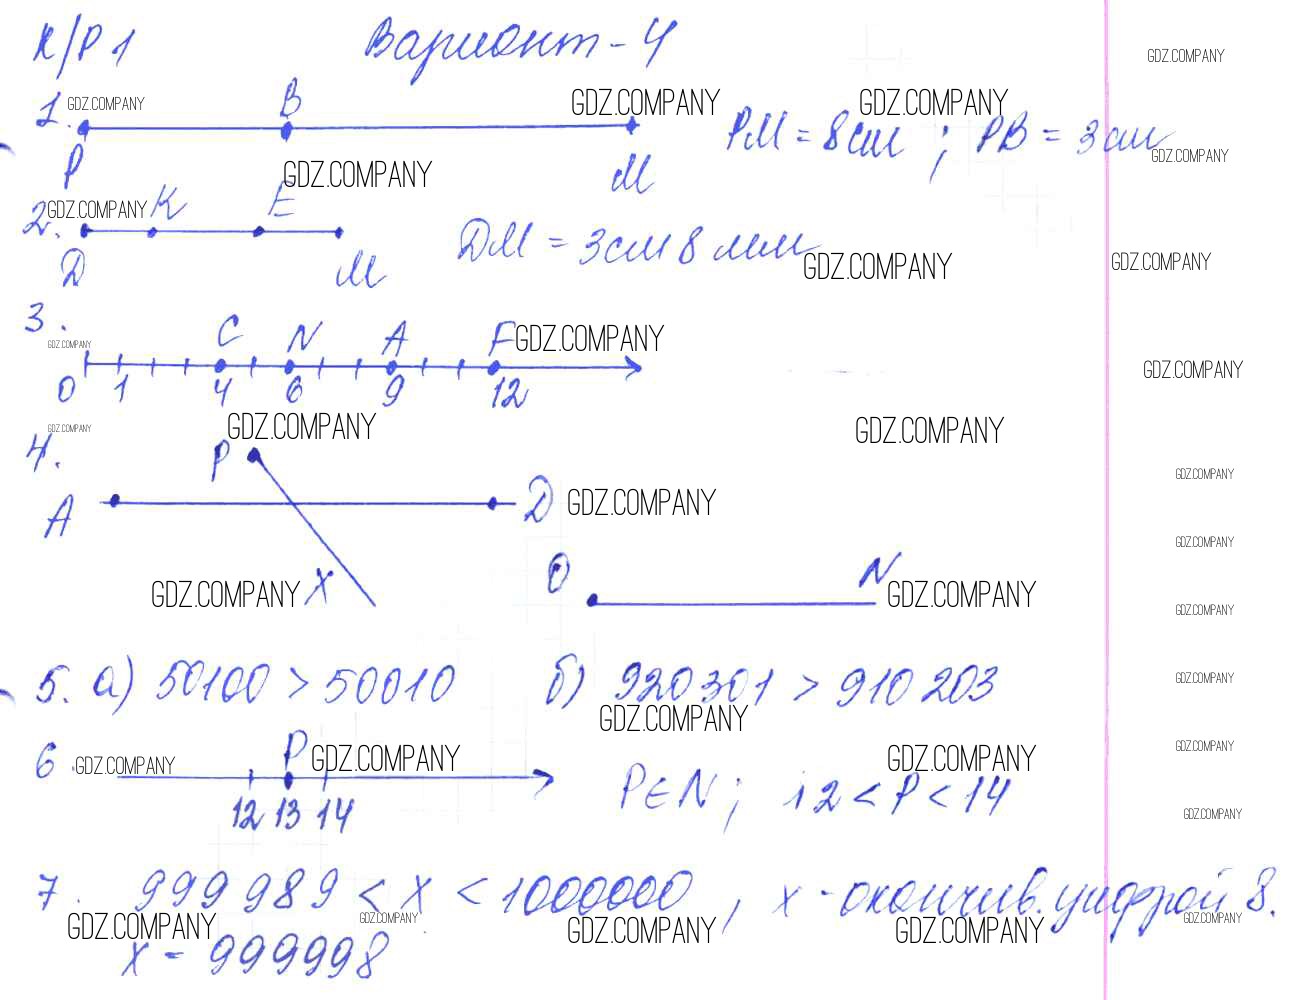 К/Р 1 Вариант - 4
GDZ.COMPANY
1. GDZ.COMPANY B GDZ.COMPANY GDZ.COMPANY
P M PM = 8 см ; PB = 3 см
GDZ.COMPANY GDZ.COMPANY
GDZ.COMPANY K E
2. D M DM = 3 см 8 мм
GDZ.COMPANY GDZ.COMPANY
3. C N A F GDZ.COMPANY
GDZ.COMPANY GDZ.COMPANY
0 1 4 6 9 12
GDZ.COMPANY GDZ.COMPANY GDZ.COMPANY
4. P GDZ.COMPANY
A D GDZ.COMPANY
GDZ.COMPANY
O N
GDZ.COMPANY X GDZ.COMPANY GDZ.COMPANY
5. а) 50100 > 50010 б) 920301 > 910203
GDZ.COMPANY
GDZ.COMPANY
6. GDZ.COMPANY P GDZ.COMPANY GDZ.COMPANY GDZ.COMPANY
12 13 14 P ∈ N ; 12 < P < 14
GDZ.COMPANY
7. 999 989 < x < 1000000 , x - окончив. цифрой 8.
GDZ.COMPANY GDZ.COMPANY GDZ.COMPANY GDZ.COMPANY GDZ.COMPANY
x = 999998